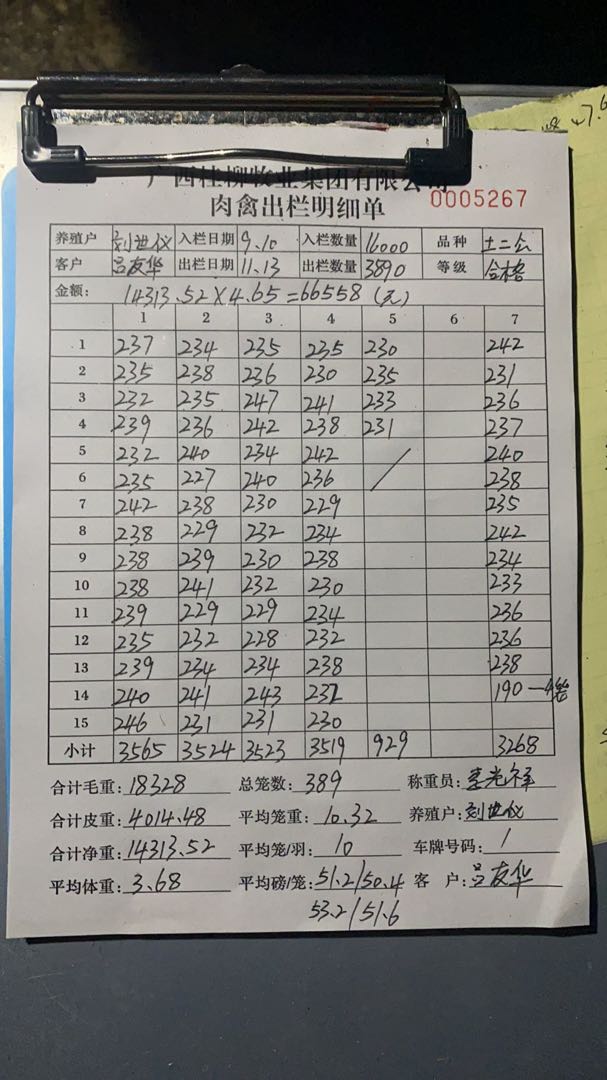 广西桂柳牧业集团有限公司
肉禽出栏明细单 0005267
养殖户 刘世仪 入栏日期 9.10 入栏数量 16000 品种 土二公
客户 吕友华 出栏日期 11.13 出栏数量 3890 等级 合格
金额: 14313.52×4.65=66558(元)
1 2 3 4 5 6 7
1 237 234 235 235 230 242
2 235 238 236 230 235 231
3 232 235 247 241 233 236
4 239 236 242 238 231 237
5 232 240 234 242 240
6 235 227 240 236 238
7 242 238 230 229 235
8 238 229 232 234 242
9 238 239 230 238 234
10 238 241 232 230 233
11 239 229 229 234 236
12 235 232 228 232 236
13 239 234 234 238 238
14 240 241 243 232 190—4笼
15 246 231 231 230
小计 3565 3524 3523 3519 929 3268
合计毛重: 18328 总笼数: 389 称重员:
合计皮重: 4014.48 平均笼重: 10.32 养殖户: 刘世仪
合计净重: 14313.52 平均笼/羽: 10 车牌号码: /
平均体重: 3.68 平均磅/笼: 51.2/50.4 客 户: 吕友华
53.2/51.6